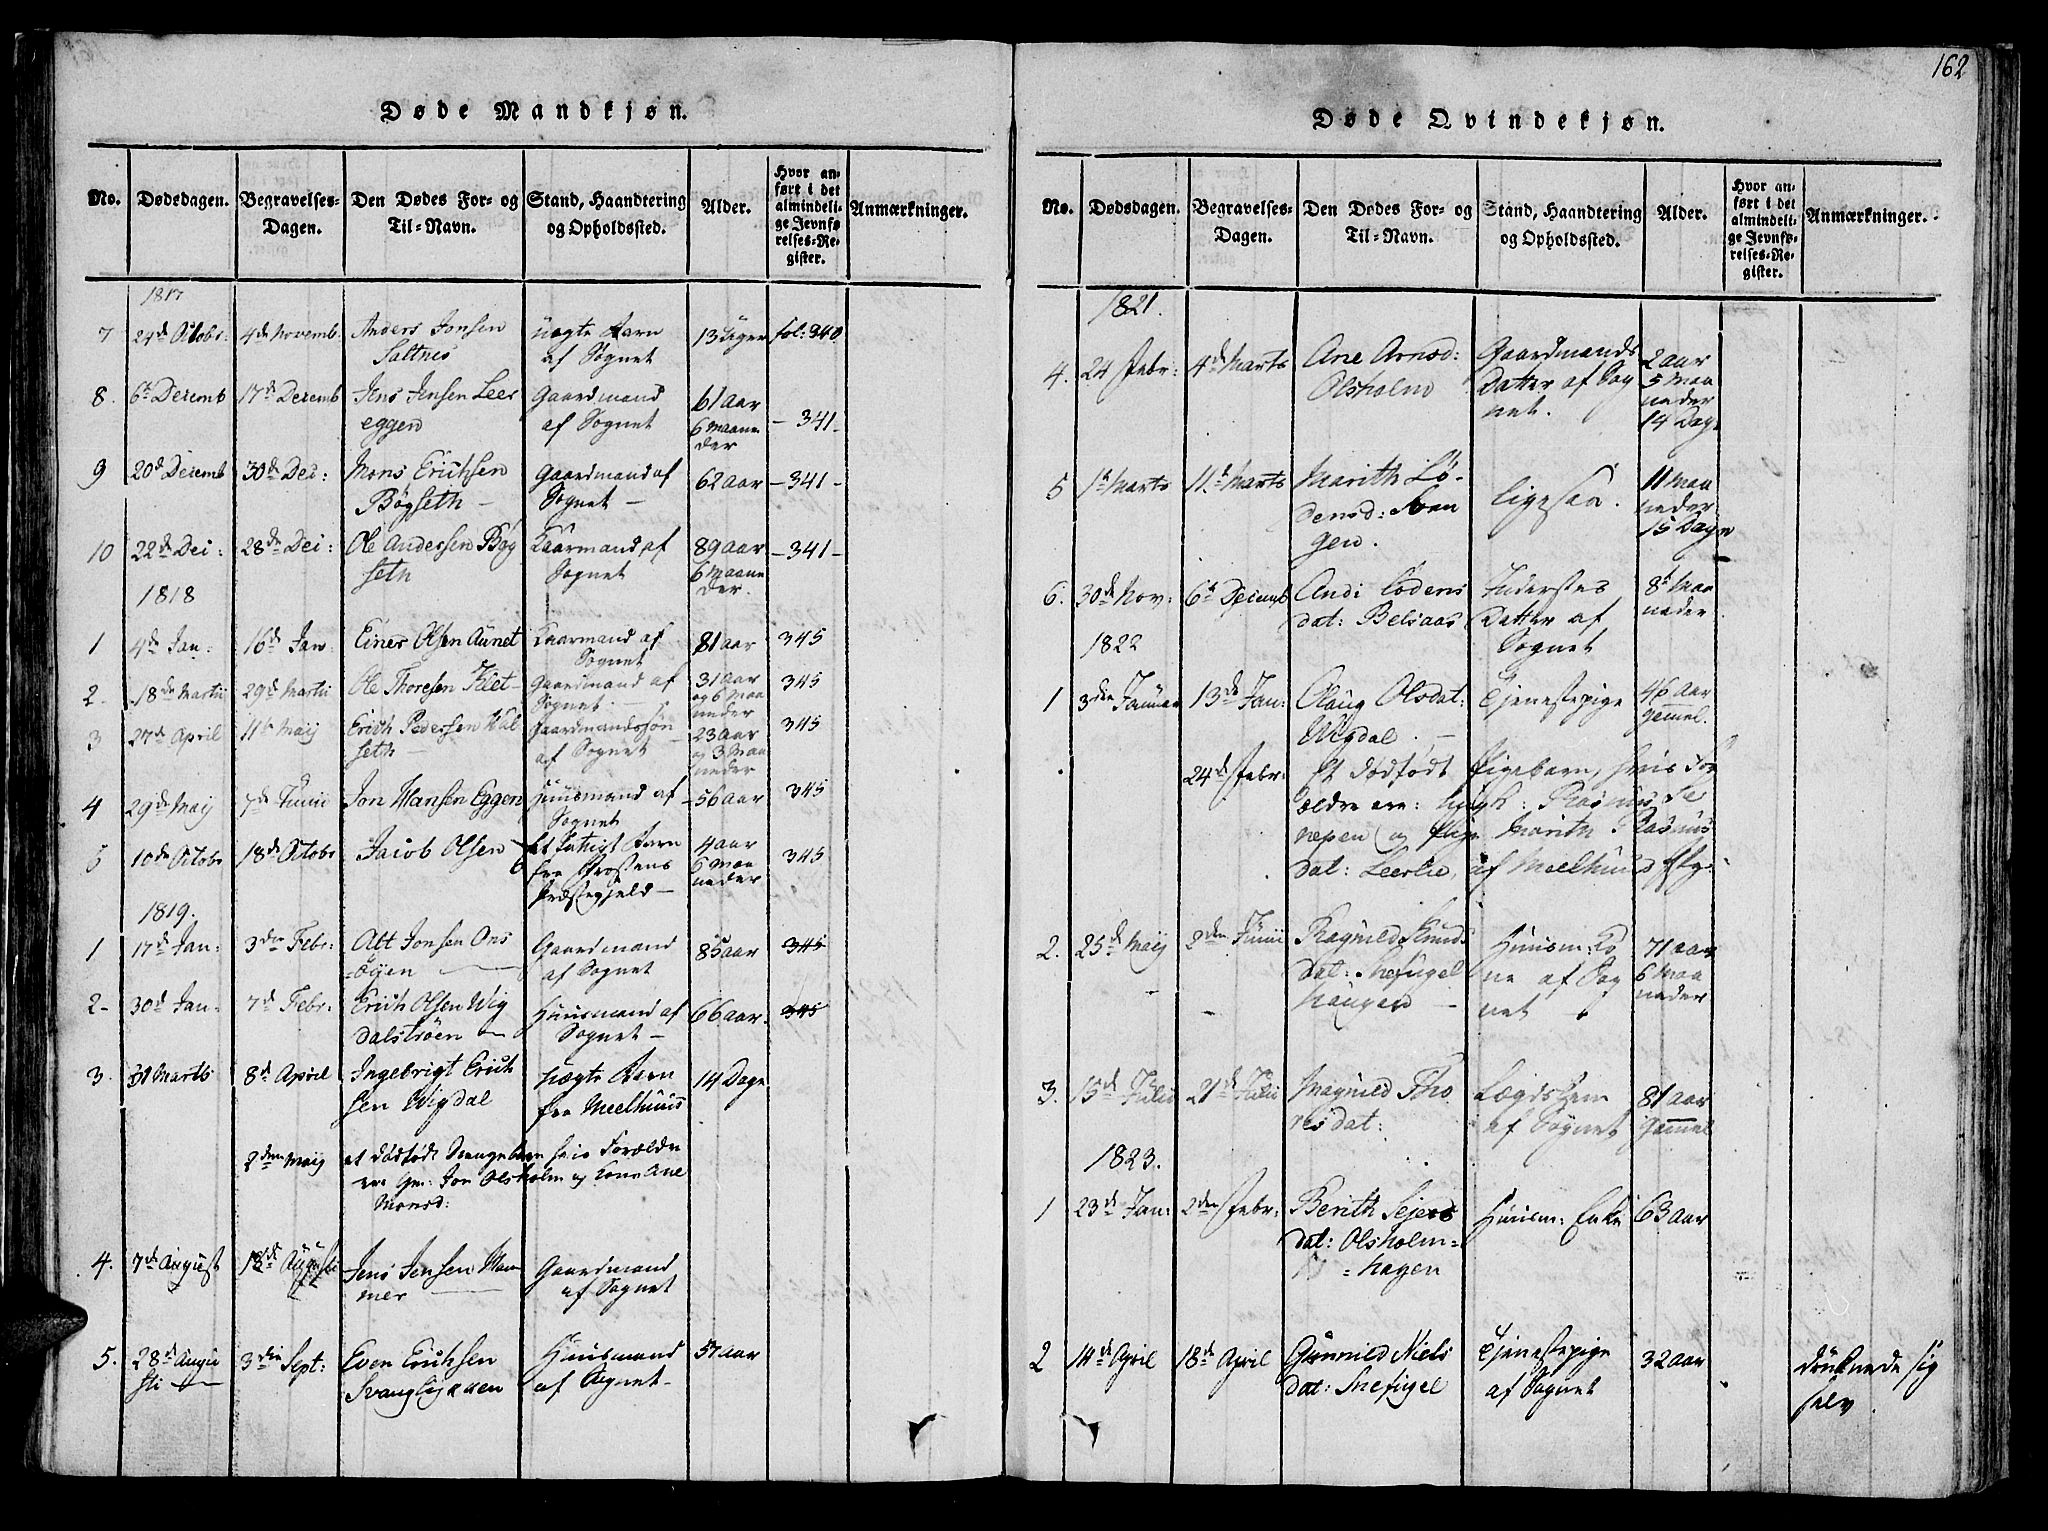 162
Døde Mandkjøn.
No. Dødsdagen. Begravelses-Dagen. Den Dødes For- og Til-Navn. Stand, Haandtering og Opholdssted. Alder. Hvor anført i det almindelige Jevnførelses-Register. Anmærkninger.
1817
7 24de Octobr: 4de Novemb. Anders Jonsen Saltnes ægte Barn af Sognet 13 Uger fol: 340
8. 6te Decemb 17de Decemb Jens Jensen Leer eggen Gaardmand af Sognet 61 Aar 6 Maane der - 341 -
9 20de Decemb 30de Dec: Mons Erichsen Bøgseth - Gaardmand af Sognet - 62 Aar - 341 -
10 22de Dec: 28de Dec: Ole Andersen Bøg seth Kaarmand af Sognet 89 Aar 6 Maane der. - 341 -
1818
1 4de Jan: 16de Jan: Einer Olsen Aunet Kaarmand af Sognet 81 Aar 345
2. 18de Martii 29de Martii Ole Thoresen Klet - Gaardmand af Sognet. - 31 Aar og 6 Maa neder 345
3 27de April 11te Maij Erich Pedersen Hul seth - Gaardmandssøn af Sognet 23 Aar og 3 Maa neder 345
4 29de Maij 7de Junii Jon Hansen Eggen Huusmand af Sognet 56 Aar 345
5 10de Octobr 18de Octobr Jacob Olsen Et fattigt Barn fra Præstegjeld - 4 Aar 6 Maa neder 345
1819.
1 17de Jan: 3die Febr: Att Jonsen Ons øyen Gaardmand af Sognet 85 Aar 345
2- 30de Jan: 7de Febr: Erich Olsen Wig dalstrøen Huusmand af Sognet - 66 Aar. 345
3. 31 Marts 8de April Ingebrigt Erich sen Wigdal Uægte Barn fra Meelhuus 14 Dage
2den Maij et dødfødt Drengebarn hvis Forældre
ere Gm: Jon Olsholm og Kone Ane
Monsd:
4. 7de August Augusti Jens Jensen Ham mer Gaardmand af Sognet
5. 28de Augu sti 3die Sept: Even Erichsen Huusmand af Sognet - 57 Aar
Døde Qvindekjøn.
No. Dødsdagen. Begravelses-Dagen. Den Dødes For- og Til-Navn. Stand, Haandtering og Opholdssted. Alder. Hvor anført i det almindelige Jevnførelses-Register. Anmærkninger.
1821.
4. 24 Febr: 4de Marts Ane Arnsd: Olsholm Gaardmands Datter af Sog net. 2 Aar 5 Maa neder 14 Dage
5 1te Marts 11te Marts Marith Lø- densd: ligesaa. 11 Maa neder 15 Dage
6. 30de Nov: 6te Decemb Andi Lødens dat: Belsaas Inderstes Datter af Sognet 8te Maa neder
1822
1 3die Januar 13de Jan: Olaug Olsdat: Wigdal. - Tjenestepige 46 Aar gamel.
24de Febr: Et dødfødt Pigebarn, hvis For
ældre ere: Ungk: Rasmus Se
næpen og Pige Marith Rasmus
dat: Leerlie, af Meelhuus
2. 25de Maij 2den Junii Ragnild Knuds dat: Snefugel haugen - Huusm: Ko ne af Sog net - 71 Aar 6 Maa neder
3. 15de Julii 21de Julii Magnild Tho resdat: Lægdslem af Sognet 81 Aar gamel
1823.
1 23de Jan: 2den Febr: Berith Sejers dat: Olsholm= =hagen Huusm: Enke 63 Aar
2 14de April 18de April Gunnild Niels dat: Snefugel Tjenestepige af Sognet 32 Aar druknede sig selv